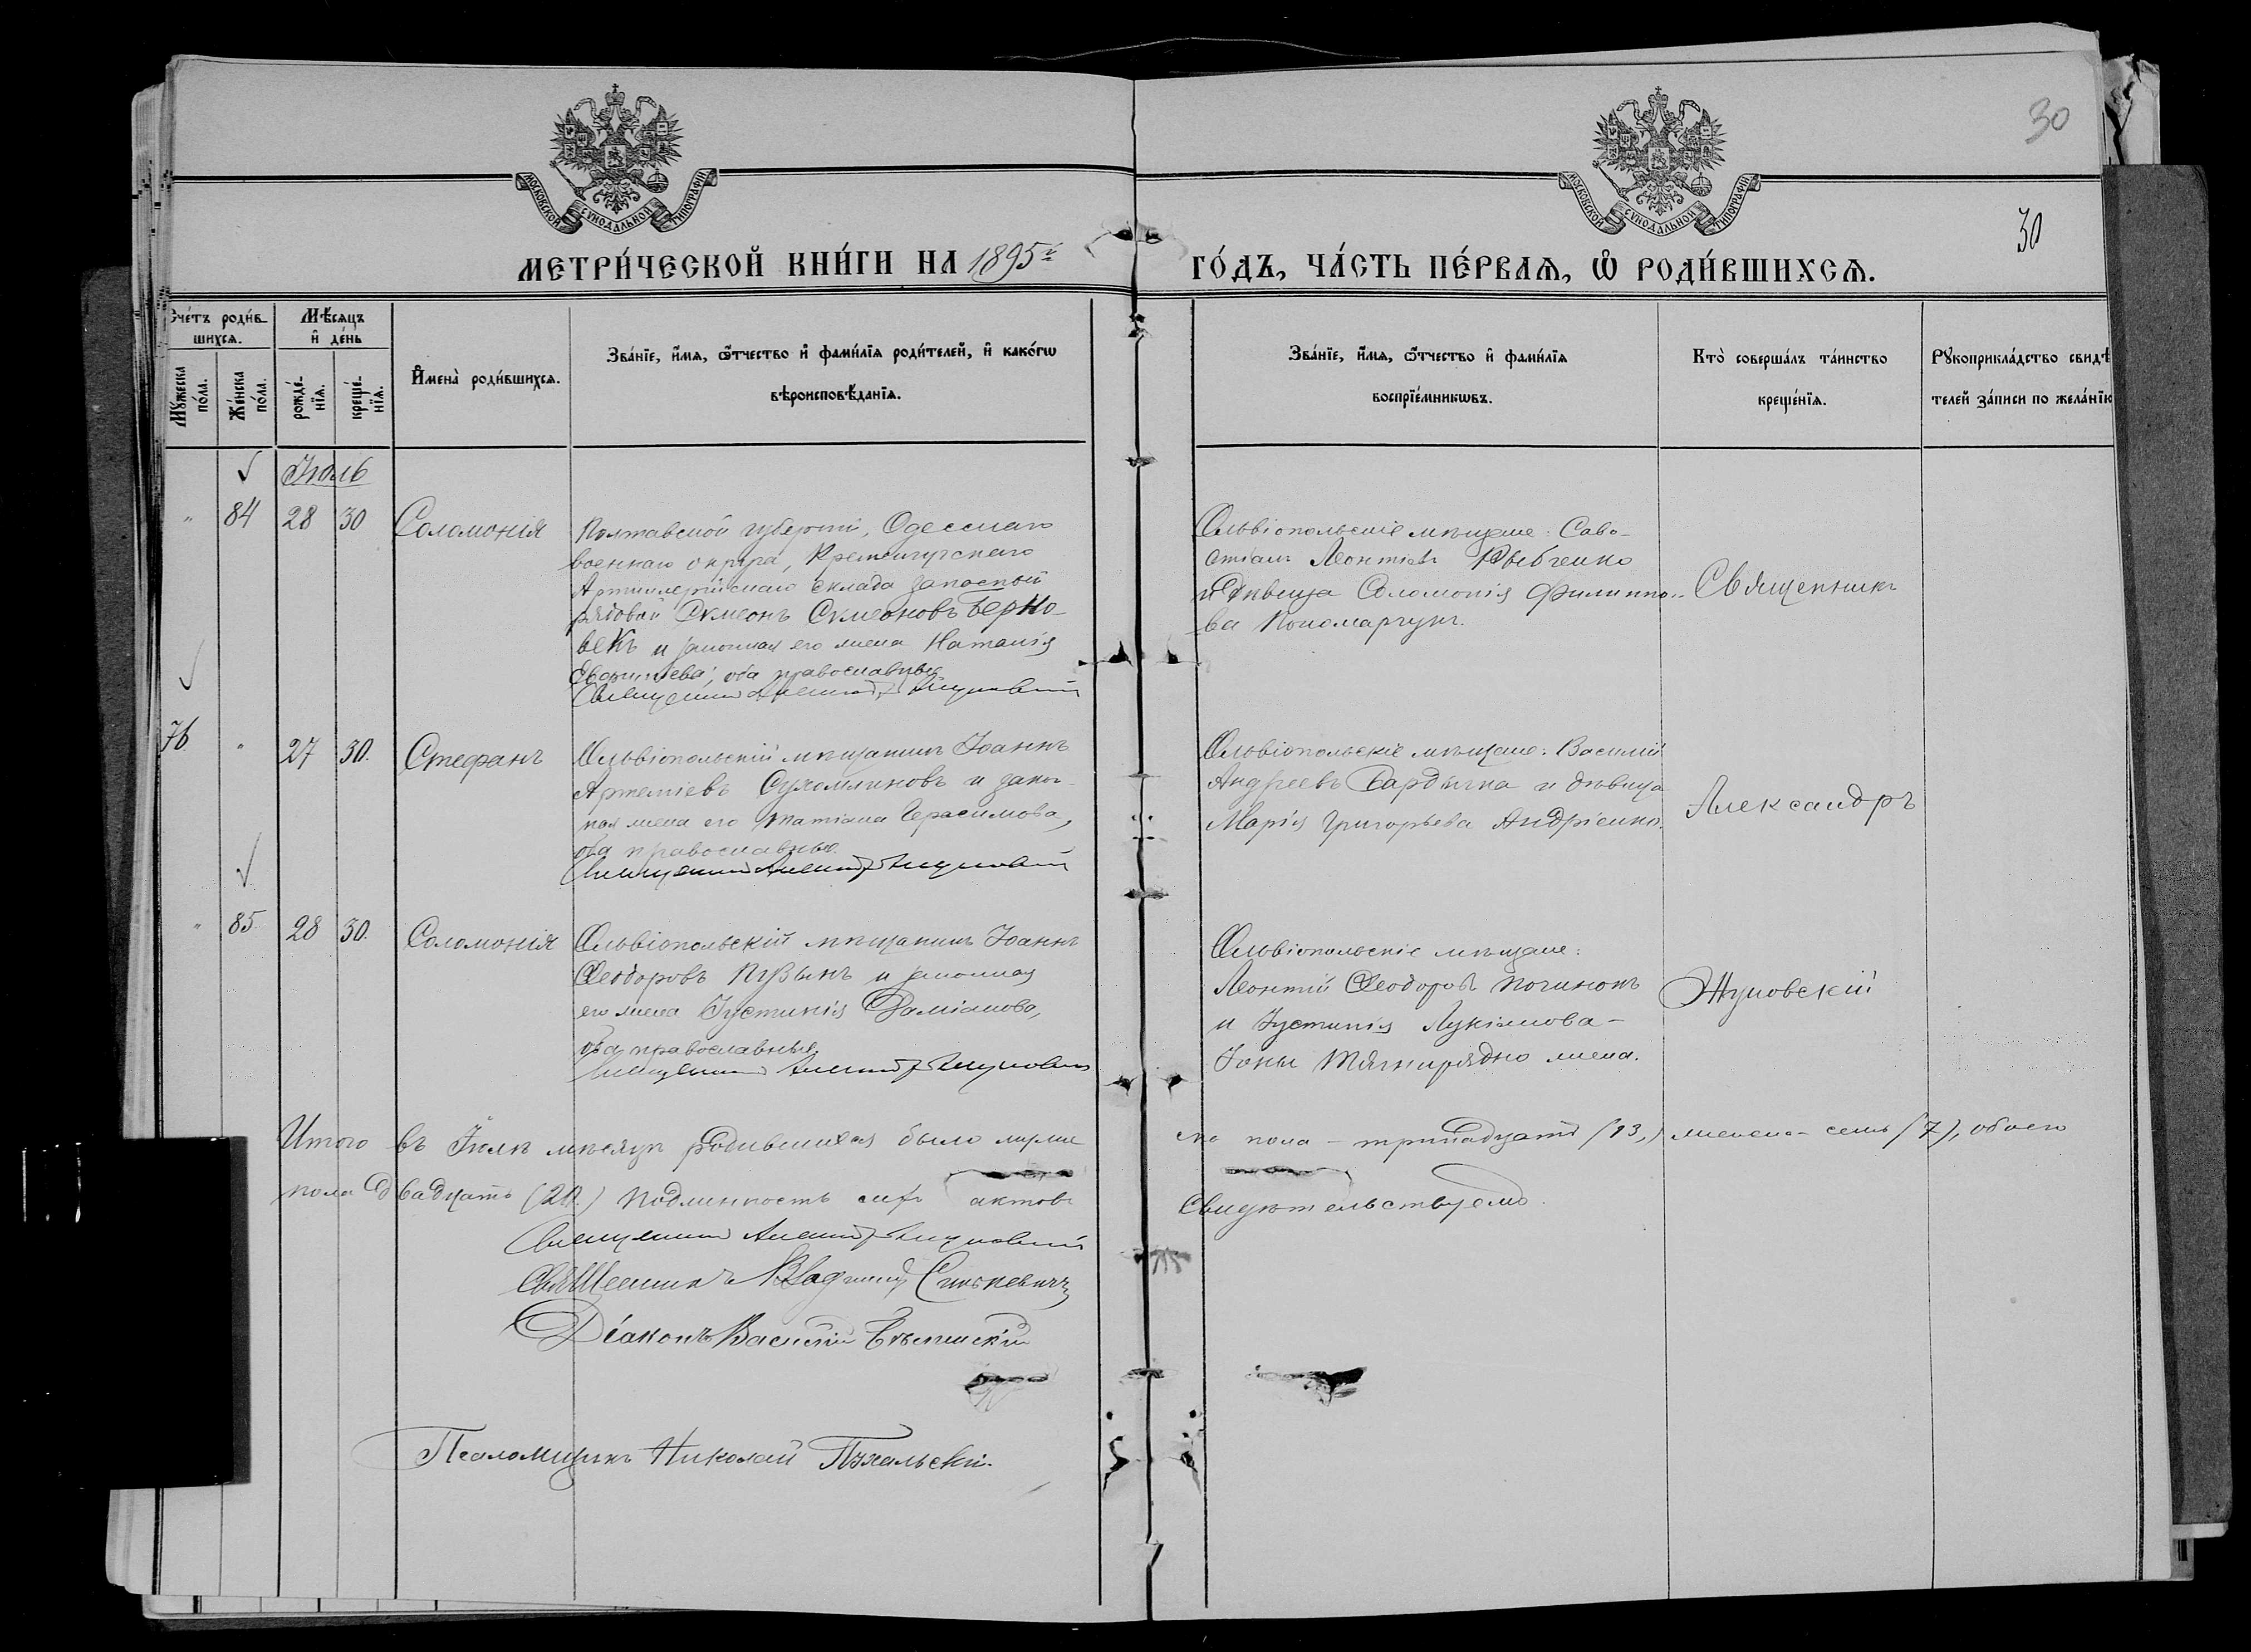 30
МОСКОВСКОЙ СѴНОДАЛЬНОЙ ТИПОГРАФІИ
МОСКОВСКОЙ СѴНОДАЛЬНОЙ ТИПОГРАФІИ
30
МЕТРИ́ЧЕСКОЙ КНИ́ГИ НА 1895й
ГО́ДЪ, ЧА́СТЬ ПЕ́РВАѦ, Ѡ҆ РОДИ́ВШИХСѦ.
Счетъ роди́в-
шихсѧ.
Мꙋ́жеска по́ла.
Же́нска по́ла.
Мѣ́сѧцъ
и҆ де́нь
рожде́-нїѧ.
креще́-нїѧ.
И҆мена̀ роди́вшихсѧ.
Зва́нїе, и҆́мѧ, ѻ҆́тчество и҆ фами́лїѧ роди́телей, и҆ како́гѡ
вѣроисповѣ́данїѧ.
Зва́нїе, и҆́мѧ, ѻ҆́тчество и҆ фами́лїѧ
воспрїе́мникѡвъ.
Кто̀ соверша́лъ та́инство
креще́нїѧ.
Рꙋкоприкла́дство свидѣ́
телей за́писи по жела́нїю
Іюль
" 84 28 30 Соломонія
Полтавской губерніи, Одесскаго
военнаго округа, Кременчугскаго
Артиллерійскаго склада запасной
рядовой Сѵмеонъ Сѵмеоновъ Берко-
векъ и законная его жена Наталія
оба православные
Священникъ Александръ Жуковскій
Ольвіопольскіе мѣщане: Саво-
стіанъ Леонтіевъ Рыбченко
и дѣвица Соломонія Филиппо-
ва Пономарчукъ.
Священникъ
76 " 27 30. Стефанъ
Ольвіопольскій мѣщанинъ Іоаннъ
Артеміевъ Сухомлиновъ и закон-
ная жена его Татіана Герасимова,
оба православные.
Священникъ Александръ Жуковскій
Ольвіопольскіе мѣщане: Василій
Андреевъ Бардычка и дѣвица
Марія Григорьева Андріенко.
Александръ
" 85 28 30. Соломонія
Ольвіопольскій мѣщанинъ Іоаннъ
Ѳеодоровъ Пузынъ и законная
его жена Іустинія Даміанова,
оба православные
Священникъ Александръ Жуковскій
Ольвіопольскіе мѣщане:
Леонтій Ѳеодоровъ Починокъ
и Іустинія Лукіанова-
Іоны Тягнирядно жена.
Жуковскій
Итого въ Іюлѣ мѣсяцѣ родившихся было муже
ска пола - тринадцать (13,) женска - семь (7), обоего
пола двадцать (20.) Подлинность сихъ актовъ
свидѣтельствуемъ.
Священникъ Александръ Жуковскій
Священникъ Владиміръ Синькевичъ
Діаконъ Василій
Псаломщикъ Николай Пухальскій.